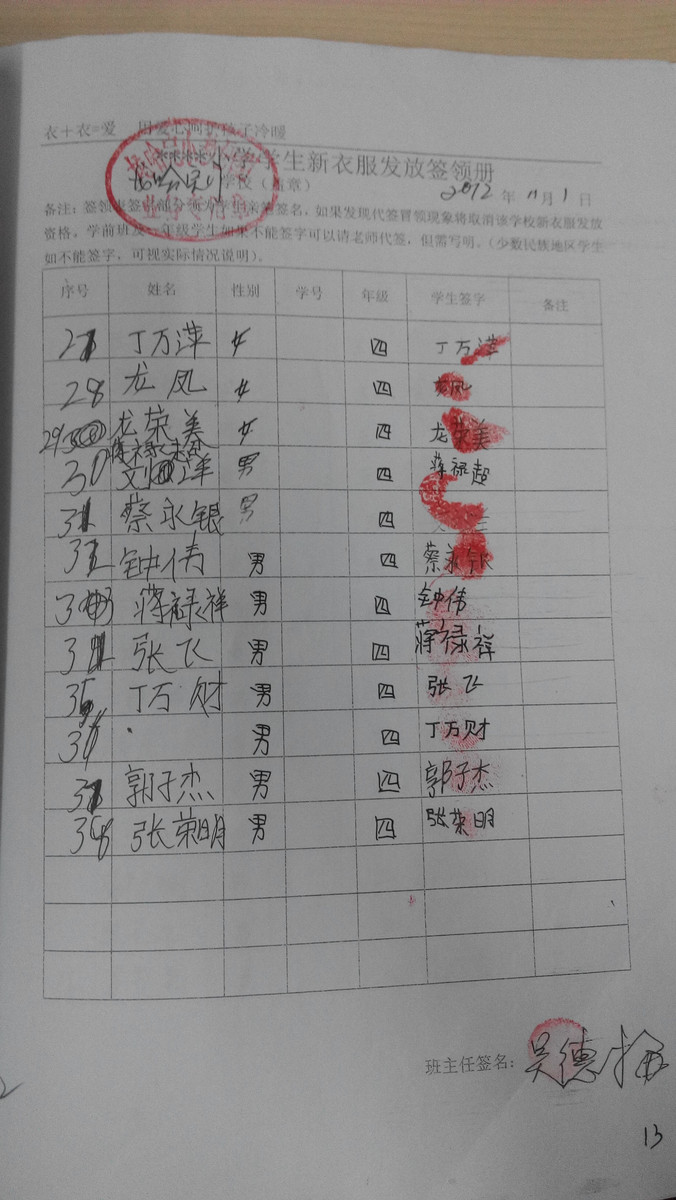 衣+衣=爱 因爱心呵护孩子冷暖
****小学学生新衣服发放签领册
学校（盖章） 2012年11月1日
备注：签领表签字部分须为学生亲笔签名，如果发现代签冒领现象将取消该学校新衣服发放
资格，学前班及一年级学生如果不能签字可以请老师代签，但需写明。（少数民族地区学生
如不能签字，可视实际情况说明）。
序号 姓名 性别 学号 年级 学生签字 备注
27 丁万萍 女 四 丁万萍
28 龙凤 女 四 龙凤
29 龙荣美 女 四 龙荣美
30 蒋禄超 男 四 蒋禄超
31 蔡永银 男 四
32 钟伟 男 四 蔡永银
33 蒋禄祥 男 四 钟伟
34 张飞 男 四 蒋禄祥
35 丁万财 男 四 张飞
36 男 四 丁万财
37 郭子杰 男 四 郭子杰
38 张荣明 男 四 张荣明
班主任签名： 吴德
13